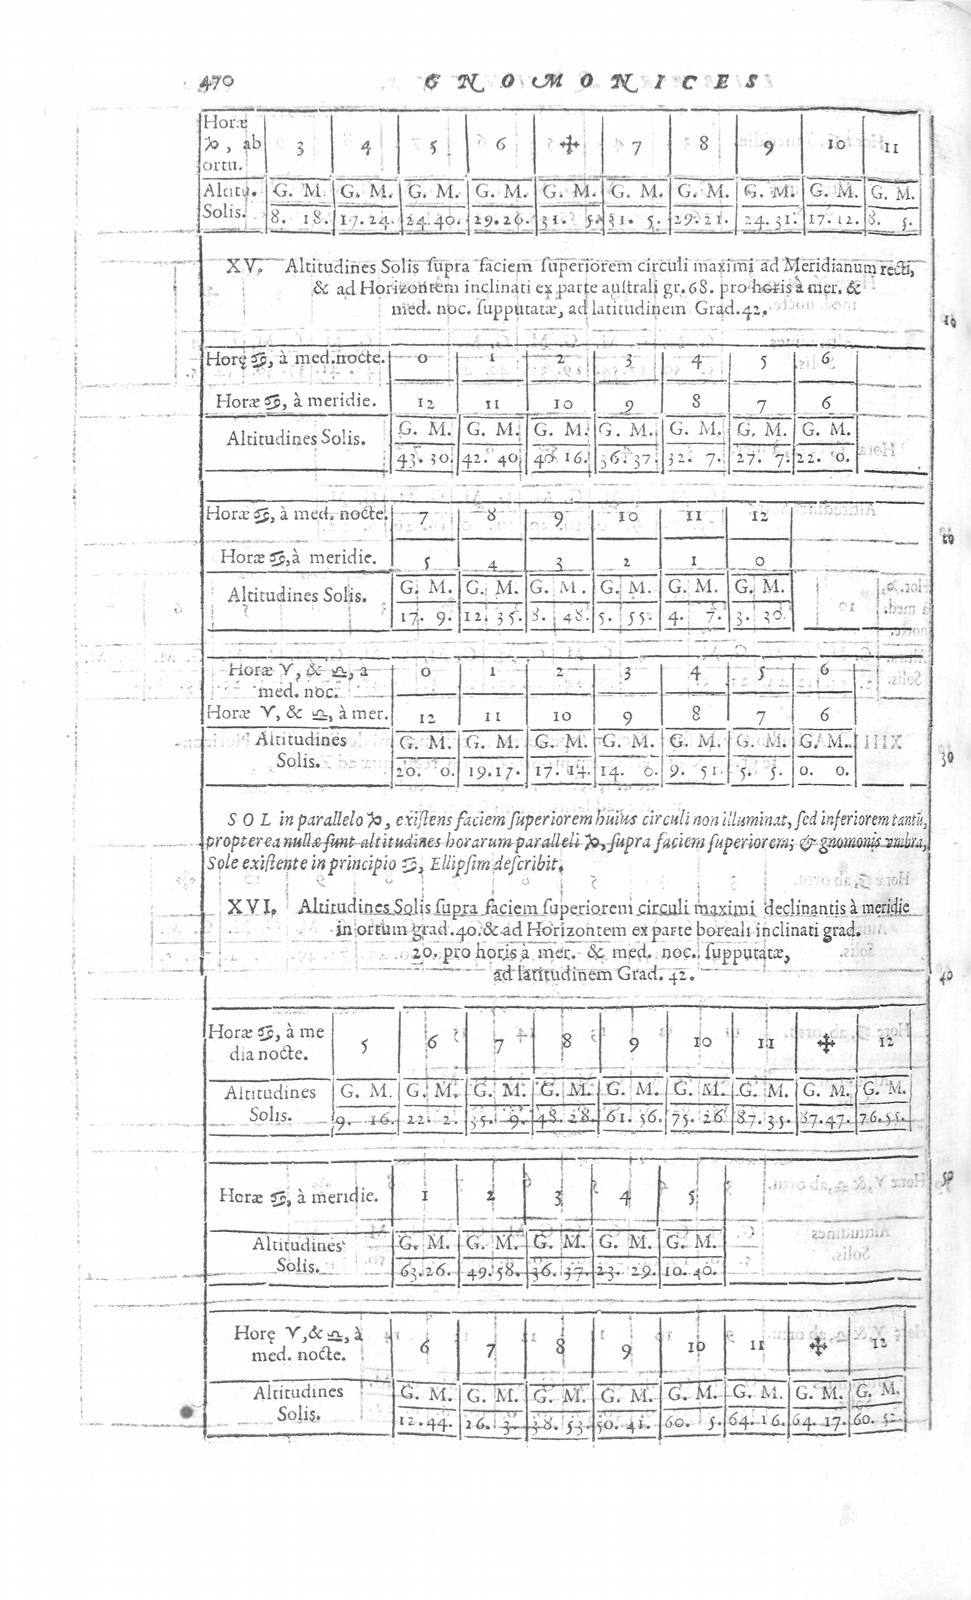 470 GNOMONICES
Horæ ♑, ab ortu. 3 4 5 6 ✠ 7 8 9 10 11
Altitu. Solis. G. M. G. M. G. M. G. M. G. M. G. M. G. M. G. M. G. M. G. M.
8. 18. 17. 24. 24. 40. 29. 26. 31. 5. 31. 5. 29. 21. 24. 31. 17. 12. 8. 5.
XV. Altitudines Solis ſupra faciem ſuperiorem circuli maximi ad Meridianum recti,
& ad Horizontem inclinati ex parte auſtrali gr. 68. pro horis à mer. &
med. noc. ſupputatæ, ad latitudinem Grad. 42.
10
Horę ♋, à med. nocte. 0 1 2 3 4 5 6
Horæ ♋, à meridie. 12 11 10 9 8 7 6
Altitudines Solis. G. M. G. M. G. M. G. M. G. M. G. M. G. M.
43. 30. 42. 40 40 16. 36. 37. 32. 7. 27. 7. 22. 0.
Horæ ♋, à med. nocte. 7 8 9 10 11 12
20
Horæ ♋, à meridie. 5 4 3 2 1 0
Altitudines Solis. G. M. G. M. G. M. G. M. G. M. G. M.
17. 9. 12. 35. 8. 48. 5. 55. 4. 7. 3. 30.
Horæ ♈, & ♎, à med. noc. 0 1 2 3 4 5 6
Horæ ♈, & ♎, à mer. 12 11 10 9 8 7 6
Altitudines Solis. G. M. G. M. G. M. G. M. G. M. G. M. G. M.
30
20. 0. 19. 17. 17. 14. 14. 0. 9. 51. 5. 5. 0. 0.
SOL in parallelo ♑, exiſtens faciem ſuperiorem huius circuli non illuminat, ſed inferiorem tantũ,
propterea nullæ ſunt altitudines horarum paralleli ♑, ſupra faciem ſuperiorem; & gnomonis umbra,
Sole exiſtente in principio ♋, Ellipſim deſcribit.
XVI. Altitudines Solis ſupra faciem ſuperiorem circuli maximi declinantis à meridie
in ortum grad. 40. & ad Horizontem ex parte boreali inclinati grad.
20. pro horis à mer. & med. noc. ſupputatæ,
ad latitudinem Grad. 42.
40
Horæ ♋, à me
dia nocte. 5 6 7 8 9 10 11 ✠ 12
Altitudines Solis. G. M. G. M. G. M. G. M. G. M. G. M. G. M. G. M. G. M.
9. 16. 22. 2. 35. 9. 48. 28. 61. 56. 75. 26 87. 35. 87. 47. 76. 55.
50
Horæ ♋, à meridie. 1 2 3 4 5
Altitudines Solis. G. M. G. M. G. M. G. M. G. M.
63. 26. 49. 58. 36. 37. 23. 29. 10. 40.
Horę ♈, & ♎, à
med. nocte. 6 7 8 9 10 11 ✠ 12
Altitudines Solis. G. M. G. M. G. M. G. M. G. M. G. M. G. M. G. M.
12. 44. 26. 3. 38. 53. 50. 41. 60. 5. 64. 16. 64. 17. 60.